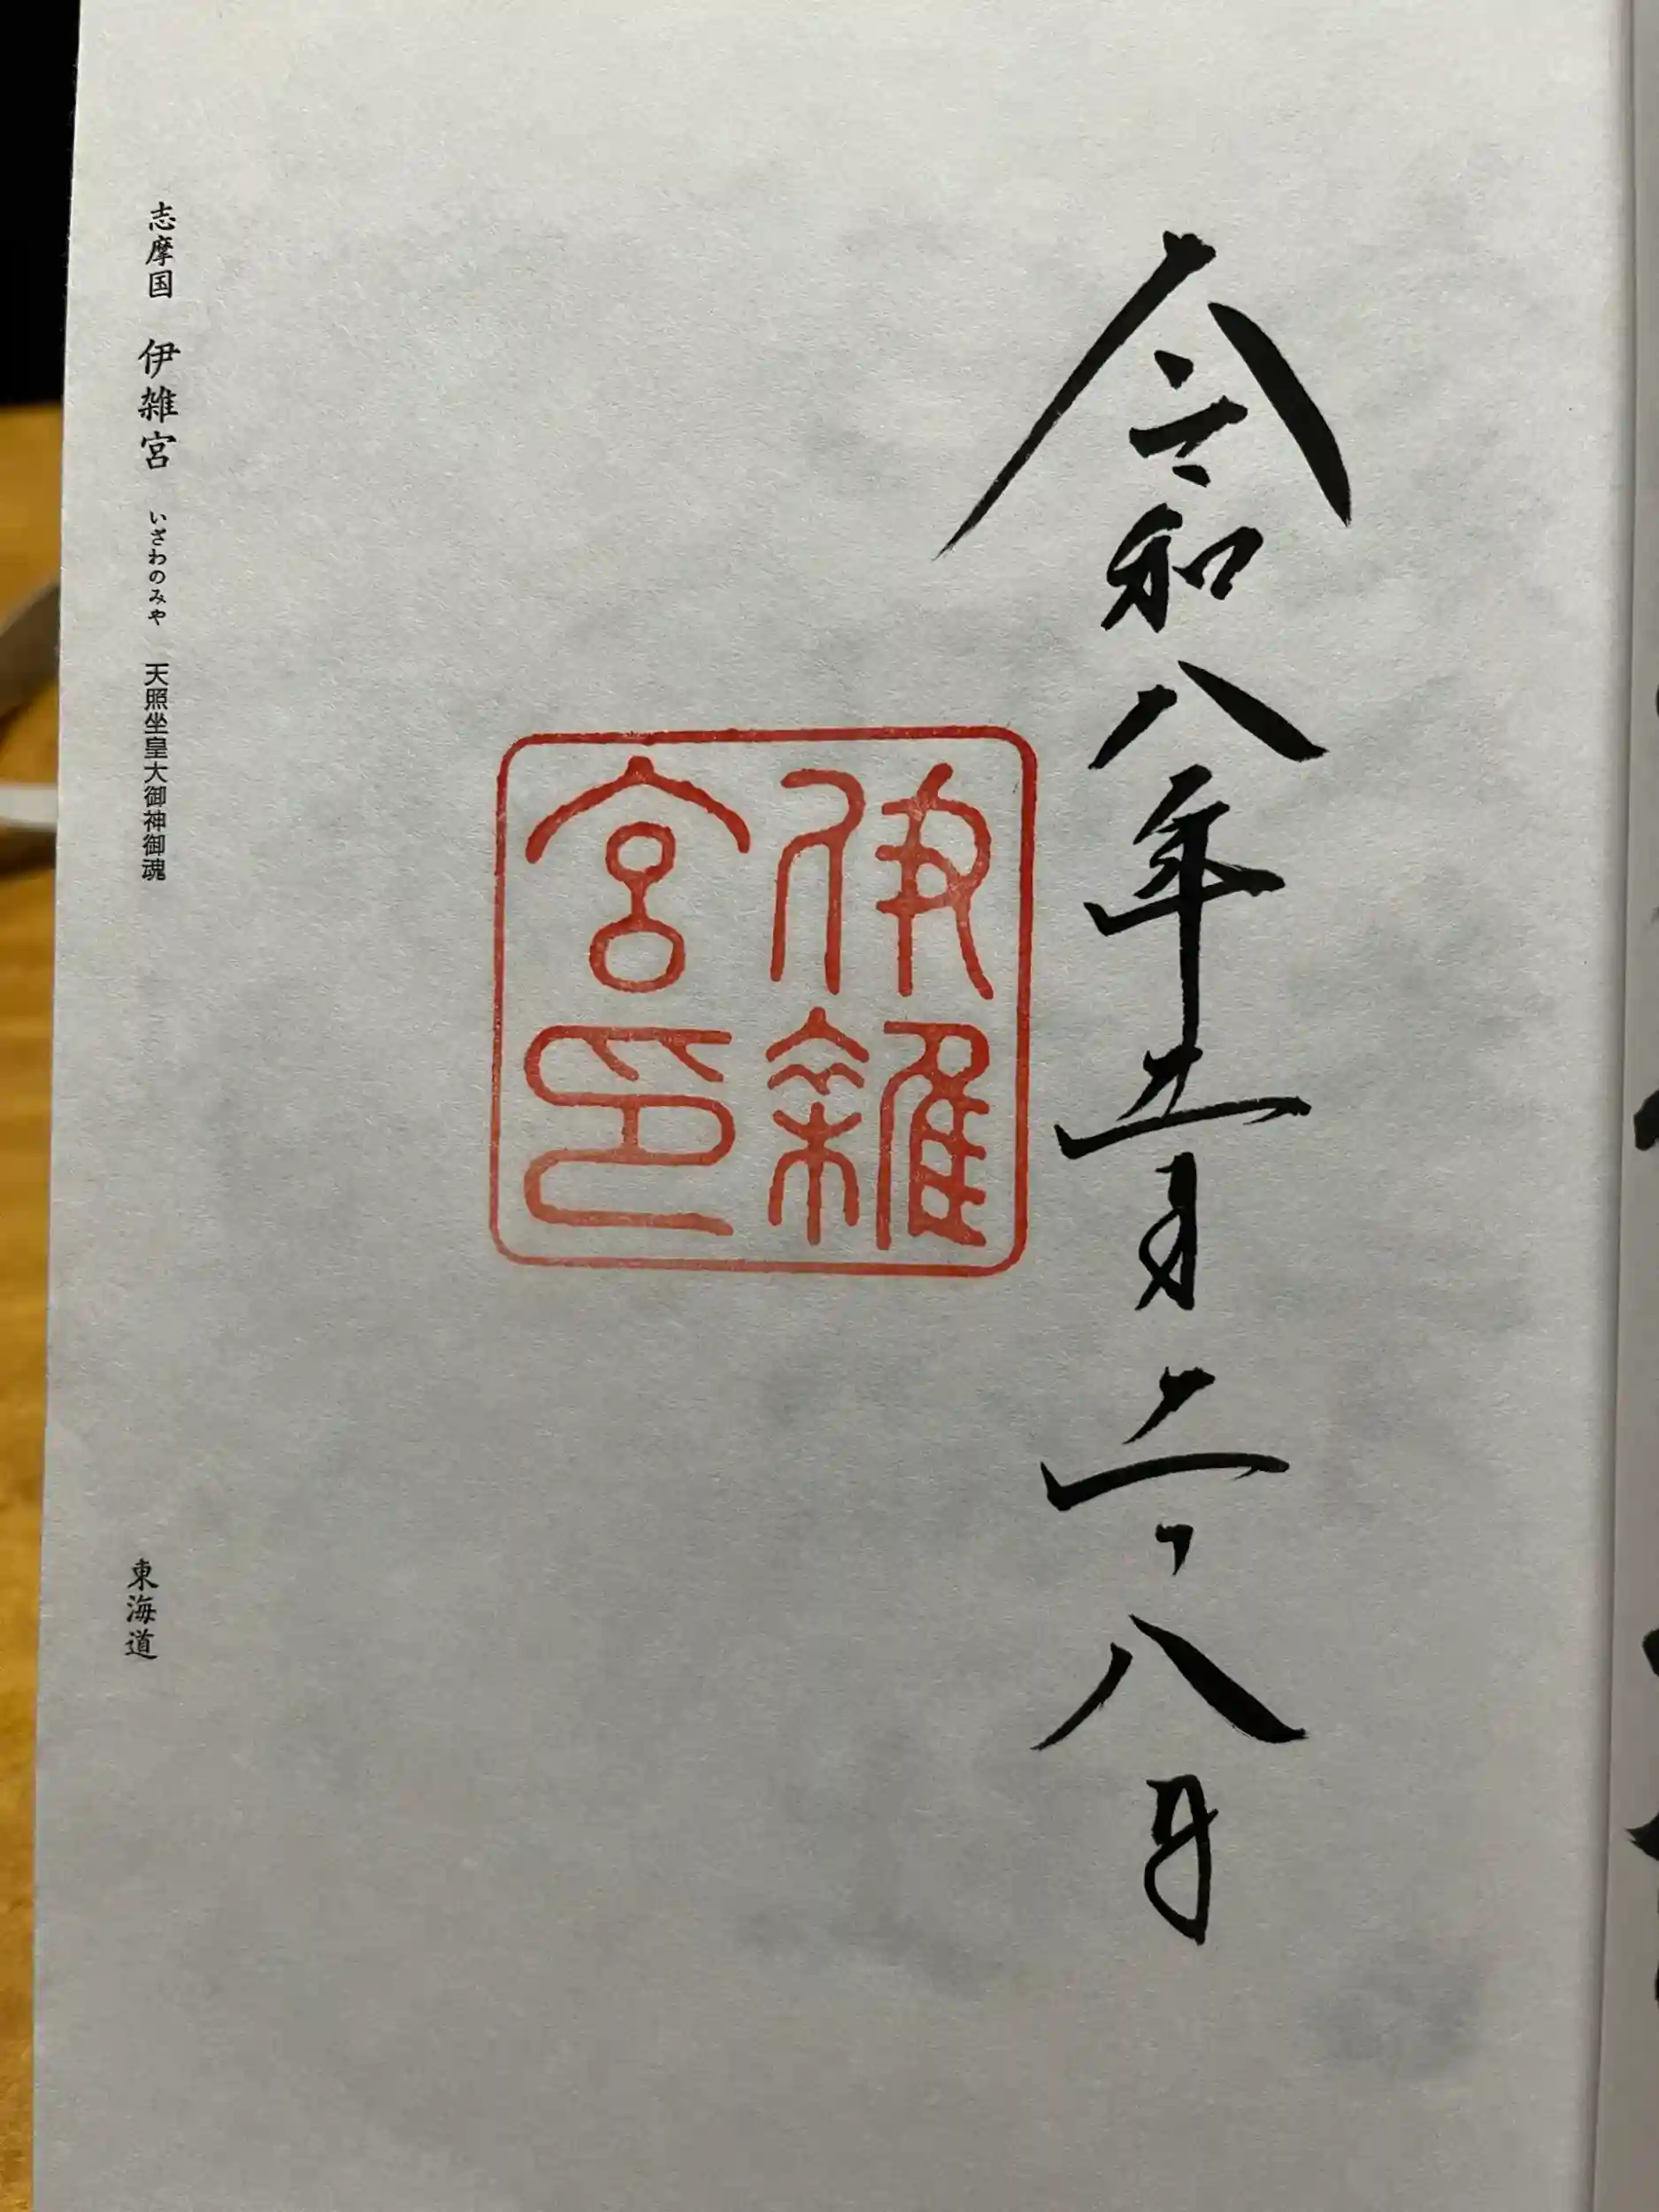 令和八年五月二十八日
伊雜
宮印
志摩国 伊雑宮 いざわのみや 天照坐皇大御神御魂 東海道